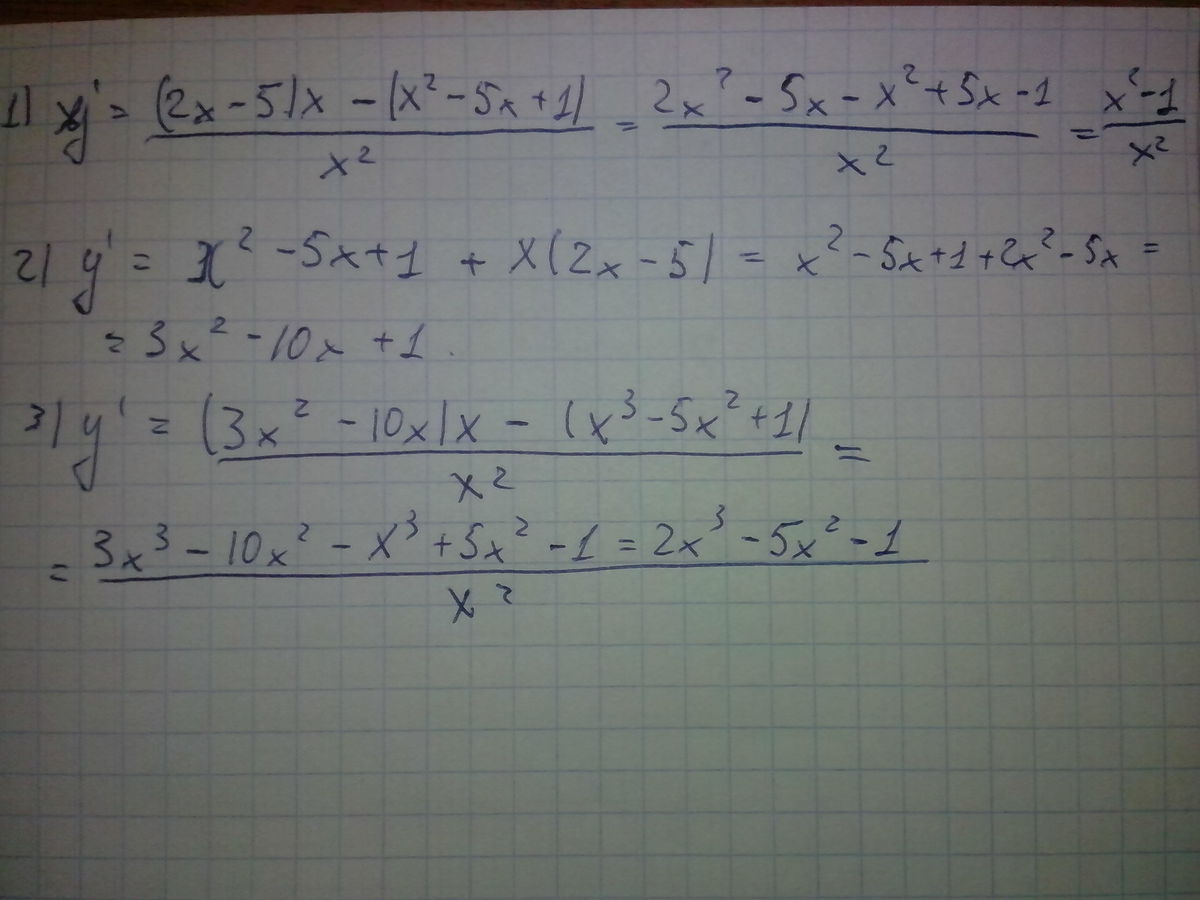 1) y' = ((2x - 5)x - (x² - 5x + 1))/x² = (2x² - 5x - x² + 5x - 1)/x² = (x² - 1)/x²
2) y' = x² - 5x + 1 + x(2x - 5) = x² - 5x + 1 + 2x² - 5x =
= 3x² - 10x + 1.
3) y' = ((3x² - 10x)x - (x³ - 5x² + 1))/x² =
= (3x³ - 10x² - x³ + 5x² - 1 = 2x³ - 5x² - 1)/x²